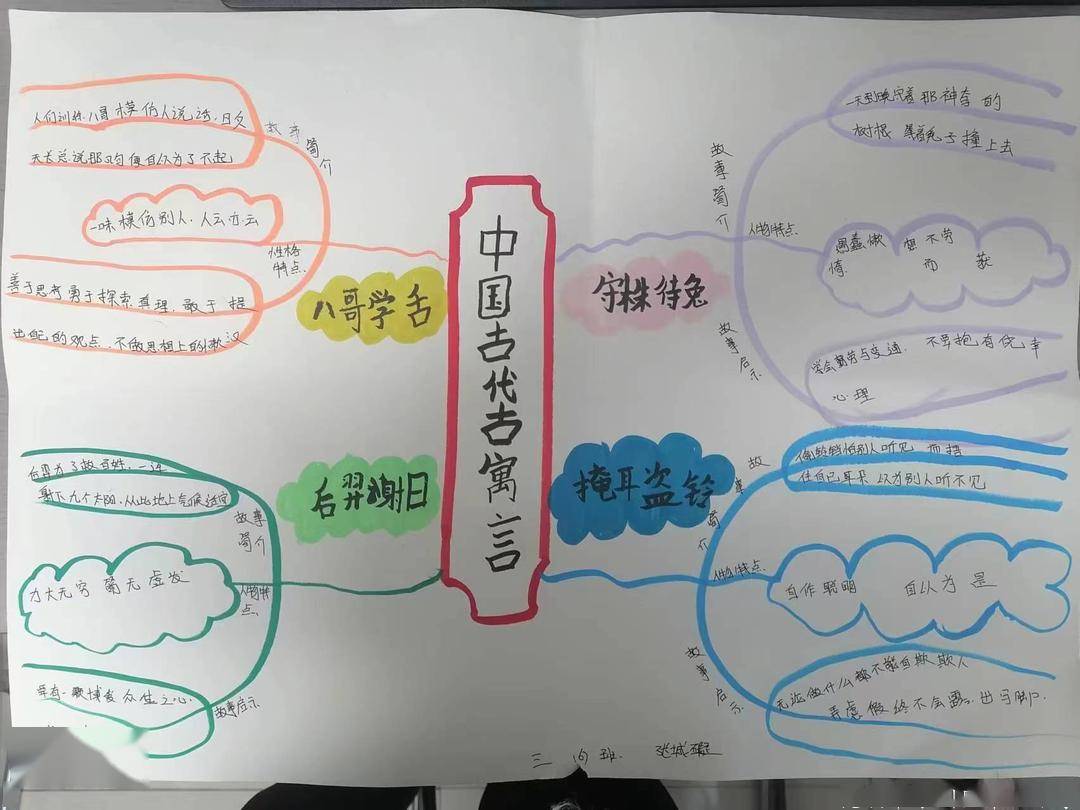 中国古代古寓言
八哥学舌
故事简介
人们训练八哥模仿人说话,日久
天长总说那几句便自以为了不起
性格特点
一味模仿别人,人云亦云
善于思考勇于探索真理,敢于提
出自己的观点,不做思想上的懒汉
守株待兔
故事简介
一天到晚守着那神奇的
树根 等着兔子撞上去
人物特点
愚蠢懒 想不劳
惰 而获
故事启示
学会勤劳与变通,不要抱有侥幸
心理
后羿射日
故事简介
后羿为了救百姓,一连
射下九个太阳,从此地上气候适宜
人物特点
力大无穷 箭无虚发
故事启示
要有一颗博爱众生之心
掩耳盗铃
故事简介
偷铃铛怕别人听见 而捂
住自己耳朵 以为别人听不见
人物特点
自作聪明 自以为是
故事启示
无论做什么都不能自欺欺人
弄虚假终不会露出马脚
三 班